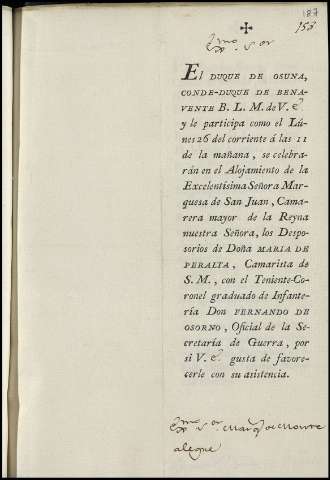 187
153
✝
Exmo. Sor.
EL DUQUE DE OSUNA,
CONDE-DUQUE DE BENA-
VENTE B. L. M. de V. E.
y le participa como el Lú-
nes 26 del corriente á las 11
de la mañana, se celebra-
rán en el Alojamiento de la
Excelentísima Señora Mar-
quesa de San Juan, Cama-
rera mayor de la Reyna
nuestra Señora, los Despo-
sorios de Doña MARIA DE
PERALTA, Camarista de
S. M., con el Teniente-Co-
ronel graduado de Infante-
ría Don FERNANDO DE
OSORNO, Oficial de la Se-
cretaría de Guerra, por
si V. E. gusta de favore-
cerle con su asistencia.
Exmo. Sor. Marqs. de Monre
alegre